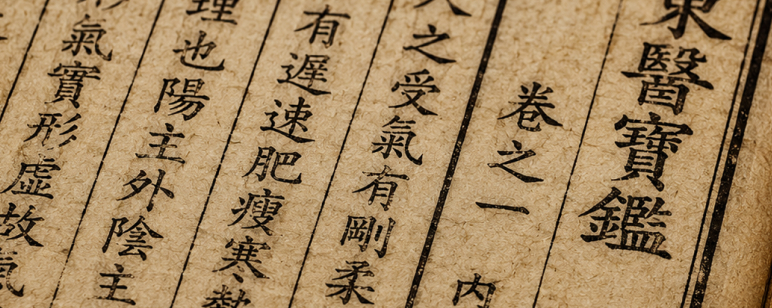 東醫寶鑑
卷之一 內
人之受氣有剛柔
有遲速肥瘦寒熱
理也陽主外陰主
氣實形虛故氣